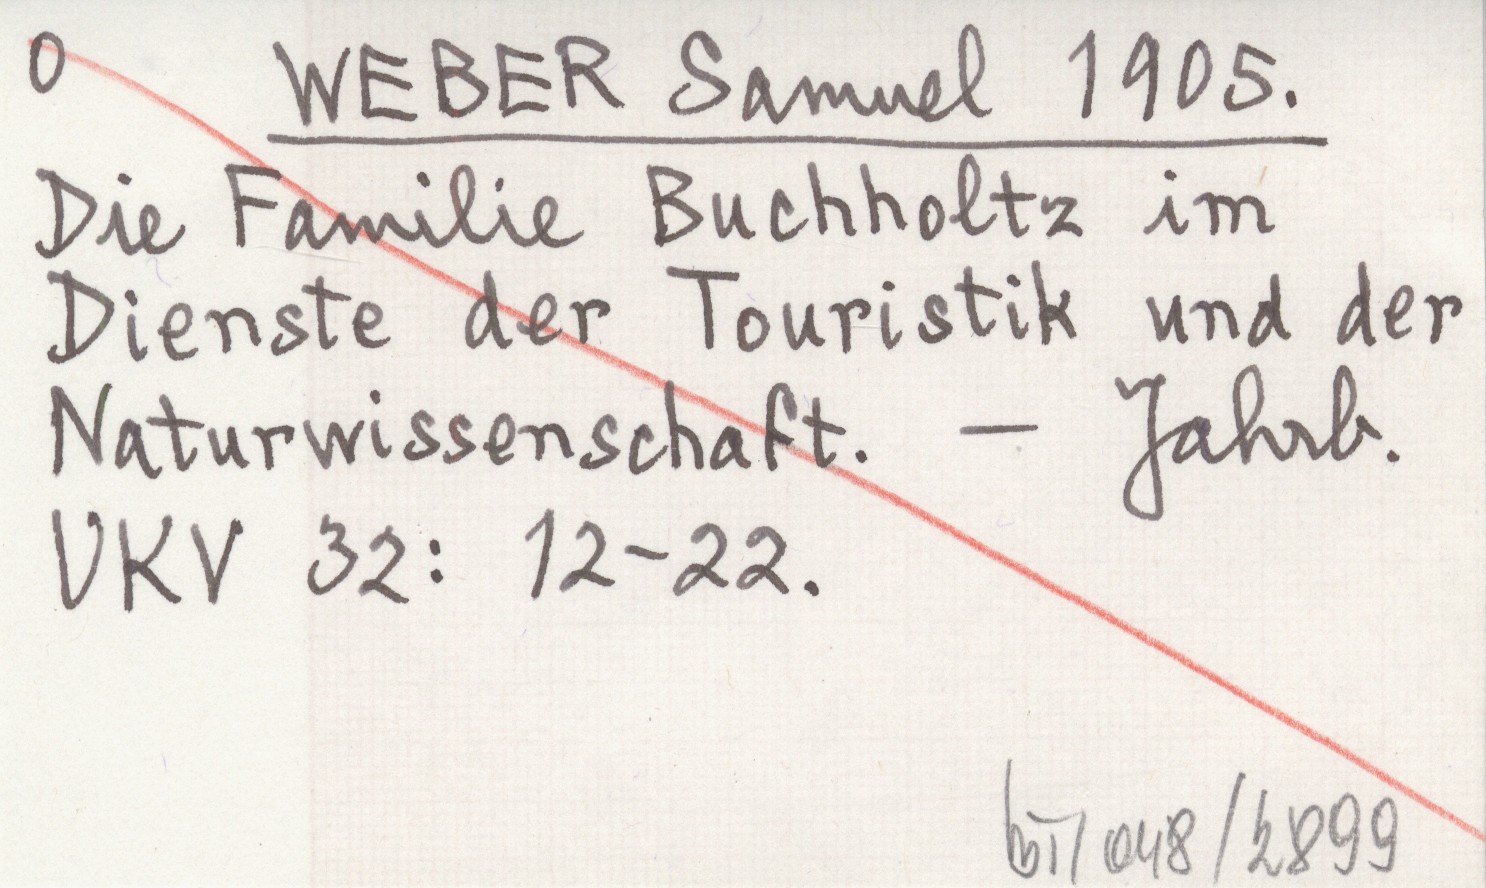 0 WEBER Samuel 1905.
Die Familie Buchholtz im
Dienste der Touristik und der
Naturwissenschaft. — Jahrb.
UKV 32: 12-22.
048/2899